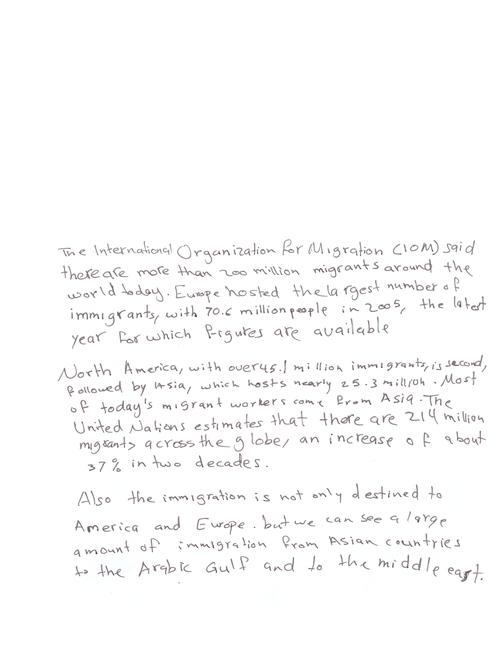 The International Organization for Migration (IOM) said
there are more than 200 million migrants around the
world today. Europe hosted the largest number of
immigrants, with 70.6 million people in 2005, the latest
year for which figures are available
North America, with over 45.1 million immigrants, is second,
followed by Asia, which hosts nearly 25.3 million. Most
of today's migrant workers come from Asia. The
United Nations estimates that there are 214 million
migrants across the globe, an increase of about
37% in two decades.
Also the immigration is not only destined to
America and Europe. but we can see a large
amount of immigration from Asian countries
to the Arabic Gulf and to the middle east.